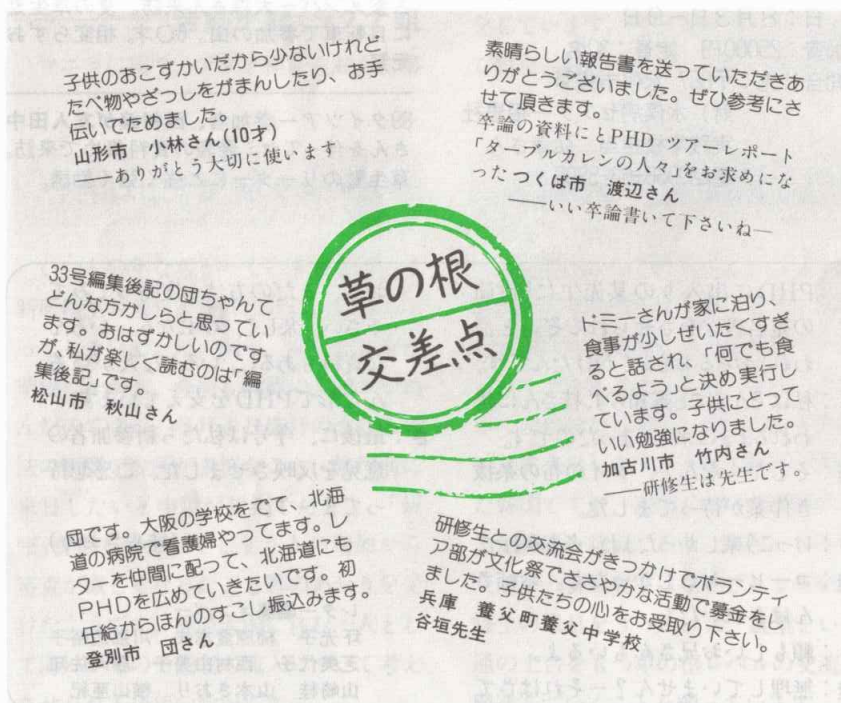 子供のおこずかいだから少ないけれど
たべ物やざっしをがまんしたり、お手
伝いでためました。
山形市　小林さん(10才)
―ありがとう大切に使います―
素晴らしい報告書を送っていただきあ
りがとうございました。ぜひ参考にさ
せて頂きます。
卒論の資料にとPHDツアーレポート
「ターブルカレンの人々」をお求めにな
ったつくば市　渡辺さん
――いい卒論書いて下さいね―
草の根
交差点
33号編集後記の団ちゃんて
どんな方かしらと思ってい
ます。おはずかしいのです
が、私が楽しく読むのは「編
集後記」です。
松山市　秋山さん
ドミーさんが家に泊り、
食事が少しぜいたくすぎ
ると話され、「何でも食
べるよう」と決め実行し
ています。子供にとって
いい勉強になりました。
加古川市　竹内さん
―研修生は先生です。
団です。大阪の学校をでて、北海
道の病院で看護婦やってます。レ
ターを仲間に配って、北海道にも
PHDを広めていきたいです。初
任給からほんのすこし振込みます。
登別市　団さん
研修生との交流会がきっかけでボランティ
ア部が文化祭でささやかな活動で募金をし
ました。子供たちの心をお受取り下さい。
兵庫　養父町養父中学校
谷垣先生